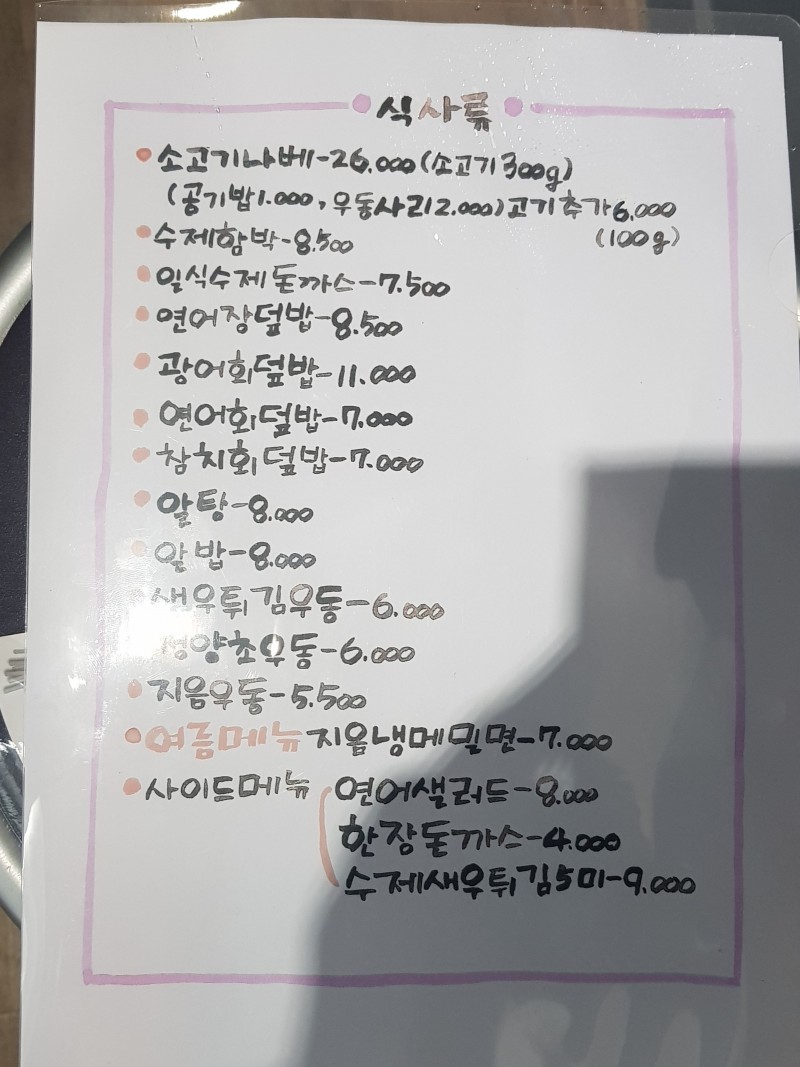 식사류
소고기나베-26.000(소고기300g)
(공기밥1.000, 우동사리2.000)고기추가6,000
(100g)
수제함박-8.500
일식수제돈까스-7.500
연어장덮밥-8.500
광어회덮밥-11.000
연어회덮밥-7.000
참치회덮밥-7.000
알탕-8.000
알밥-8.000
새우튀김우동-6.000
청양초우동-6.000
지음우동-5.500
여름메뉴 지음냉메밀면-7.000
사이드메뉴 연어샐러드-8.000
한장돈까스-4.000
수제새우튀김5미-9.000